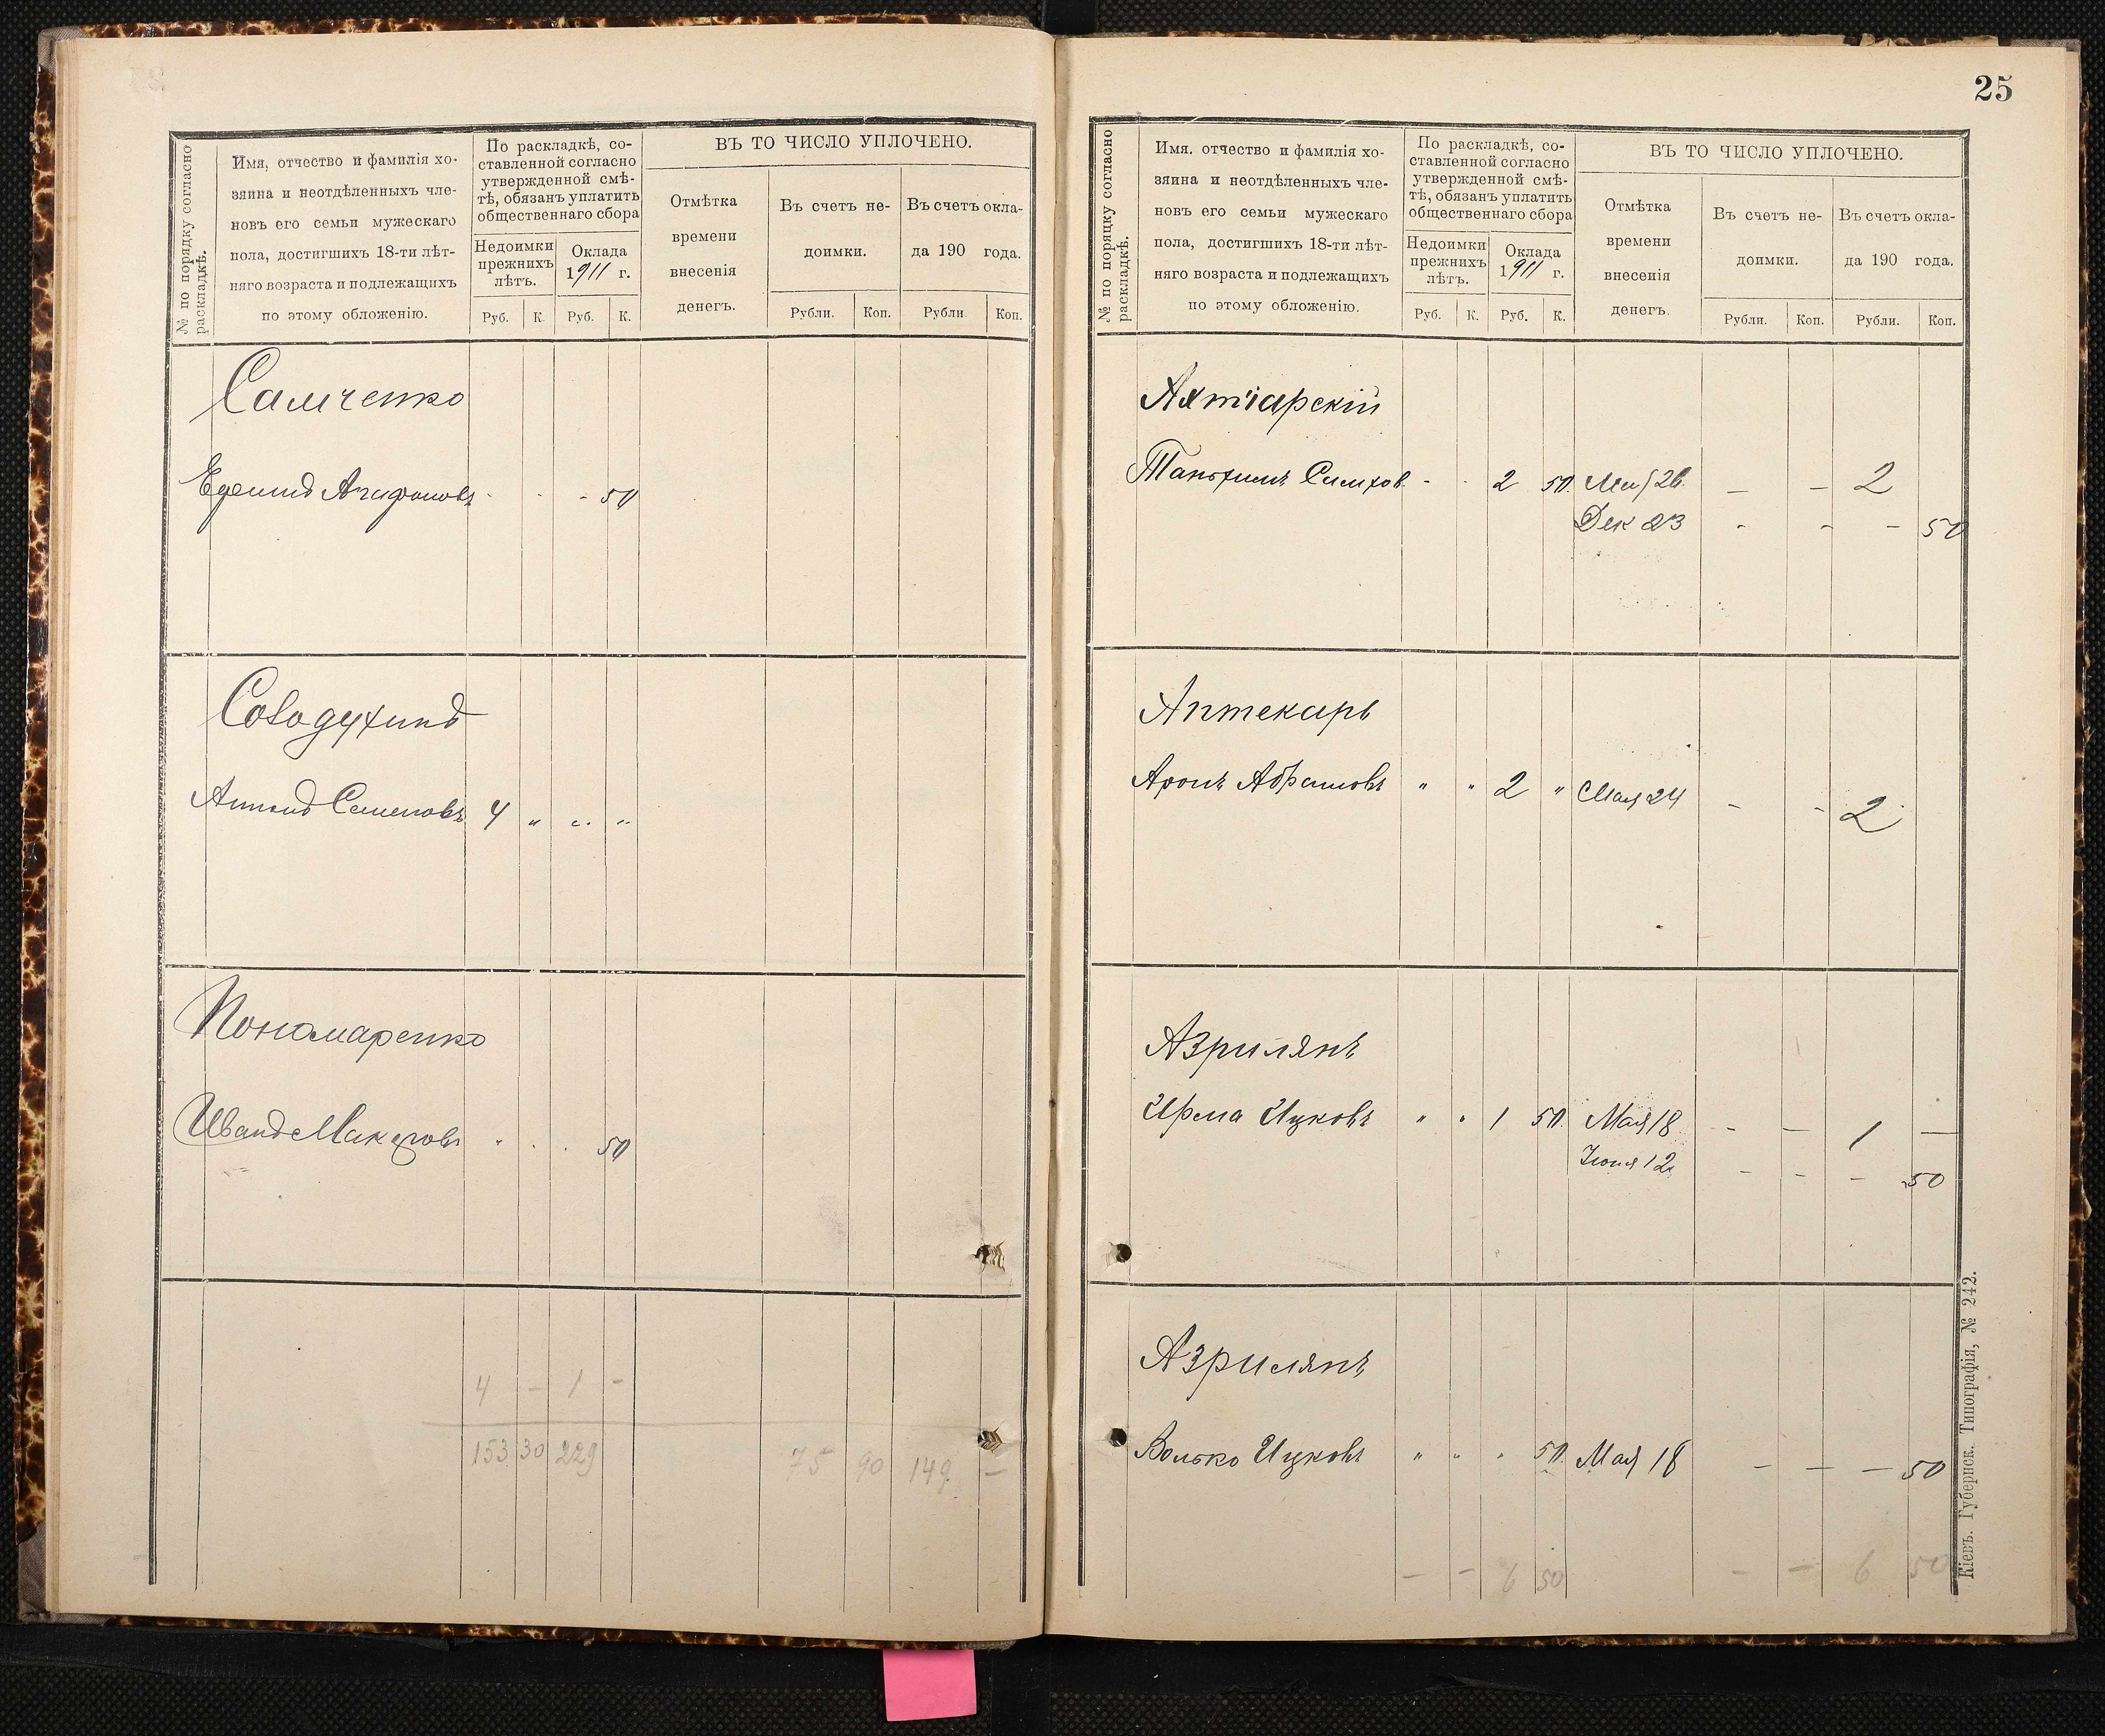 № по порядку согласно
раскладкѣ.
Имя, отчество и фамилія хо-
зяина и неотдѣленныхъ чле-
новъ его семьи мужескаго
пола, достигшихъ 18-ти лѣт-
няго возраста и подлежащихъ
по этому обложенію.
По раскладкѣ, со-
ставленной согласно
утвержденной смѣ-
тѣ, обязанъ уплатить
общественнаго сбора
Недоимки
прежнихъ
лѣтъ.
Оклада
1911 г.
Руб. К. Руб. К.
ВЪ ТО ЧИСЛО УПЛОЧЕНО.
Отмѣтка
времени
внесенія
денегъ.
Въ счетъ не-
доимки.
Въ счетъ окла-
да 190 года.
Рубли. Коп. Рубли. Коп.
Самченко
- - - 50
Солодухинъ
Антонъ Семеновъ 4 " " "
Пономаренко
Иванъ Макаровъ " . . 50
4 - 1 -
153 30 229 75 90 149 -
25
№ по порядку согласно
раскладкѣ.
Имя. отчество и фамилія хо-
зяина и неотдѣленныхъ чле-
новъ его семьи мужескаго
пола, достигшихъ 18-ти лѣт-
няго возраста и подлежащихъ
по этому обложенію.
По раскладкѣ, со-
ставленной согласно
утвержденной смѣ-
тѣ, обязанъ уплатить
общественнаго сбора
Недоимки
прежнихъ
лѣтъ.
Оклада
1911 г.
Руб. К. Руб. К.
ВЪ ТО ЧИСЛО УПЛОЧЕНО.
Отмѣтка
времени
внесенія
денегъ.
Въ счетъ не-
доимки.
Въ счетъ окла-
да 190 года.
Рубли. Коп. Рубли. Коп.
Ахтіарскій
Танхумъ Симхов. - - 2 50 Мая 26. — — 2
Дек 23 - - - 50
Аптекарь
Аронъ Абрамовъ " " 2 " Мая 24 - - 2
Азрилянъ
Ицковъ " " 1 50 Мая 18 - — 1 —
Іюня 12 - - - 50
Азрилянъ
Волько Ицковъ " " " 50 Мая 18 — — — 50
— — 6 50 — — 6 50
Кіевъ. Губернск. Типографія, № 242.